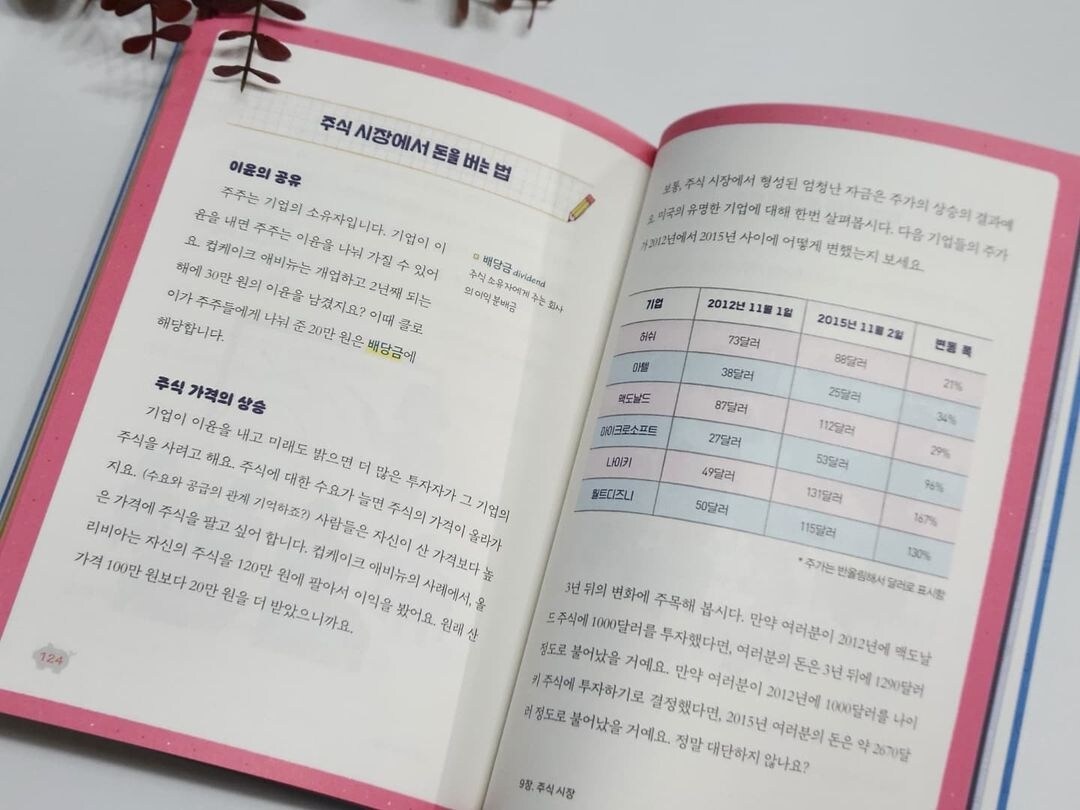 주식 시장에서 돈을 버는 법
이윤의 공유
주주는 기업의 소유자입니다. 기업이 이
윤을 내면 주주는 이윤을 나눠 가질 수 있어
요. 컵케이크 애비뉴는 개업하고 2년째 되는
해에 30만 원의 이윤을 남겼지요? 이때 클로
이가 주주들에게 나눠 준 20만 원은 배당금에
해당합니다.
배당금 dividend
주식 소유자에게 주는 회사
의 이익 분배금
주식 가격의 상승
기업이 이윤을 내고 미래도 밝으면 더 많은 투자자가 그 기업의
주식을 사려고 해요. 주식에 대한 수요가 늘면 주식의 가격이 올라가
지요. (수요와 공급의 관계 기억하죠?) 사람들은 자신이 산 가격보다 높
은 가격에 주식을 팔고 싶어 합니다. 컵케이크 애비뉴의 사례에서, 올
리비아는 자신의 주식을 120만 원에 팔아서 이익을 봤어요. 원래 산
가격 100만 원보다 20만 원을 더 받았으니까요.
124
보통, 주식 시장에서 형성된 엄청난 자금은 주가의 상승의 결과예
요. 미국의 유명한 기업에 대해 한번 살펴봅시다. 다음 기업들의 주가
가 2012년에서 2015년 사이에 어떻게 변했는지 보세요.
기업 2012년 11월 1일 2015년 11월 2일 변동 폭
허쉬 73달러 88달러 21%
마텔 38달러 25달러 34%
맥도날드 87달러 112달러 29%
마이크로소프트 27달러 53달러 96%
나이키 49달러 131달러 167%
월트디즈니 50달러 115달러 130%
* 주가는 반올림해서 달러로 표시함
3년 뒤의 변화에 주목해 봅시다. 만약 여러분이 2012년에 맥도날
드 주식에 1000달러를 투자했다면, 여러분의 돈은 3년 뒤에 1290달러
정도로 불어났을 거예요. 만약 여러분이 2012년에 1000달러를 나이
키 주식에 투자하기로 결정했다면, 2015년 여러분의 돈은 약 2670달
러 정도로 불어났을 거예요. 정말 대단하지 않나요?
9장. 주식 시장